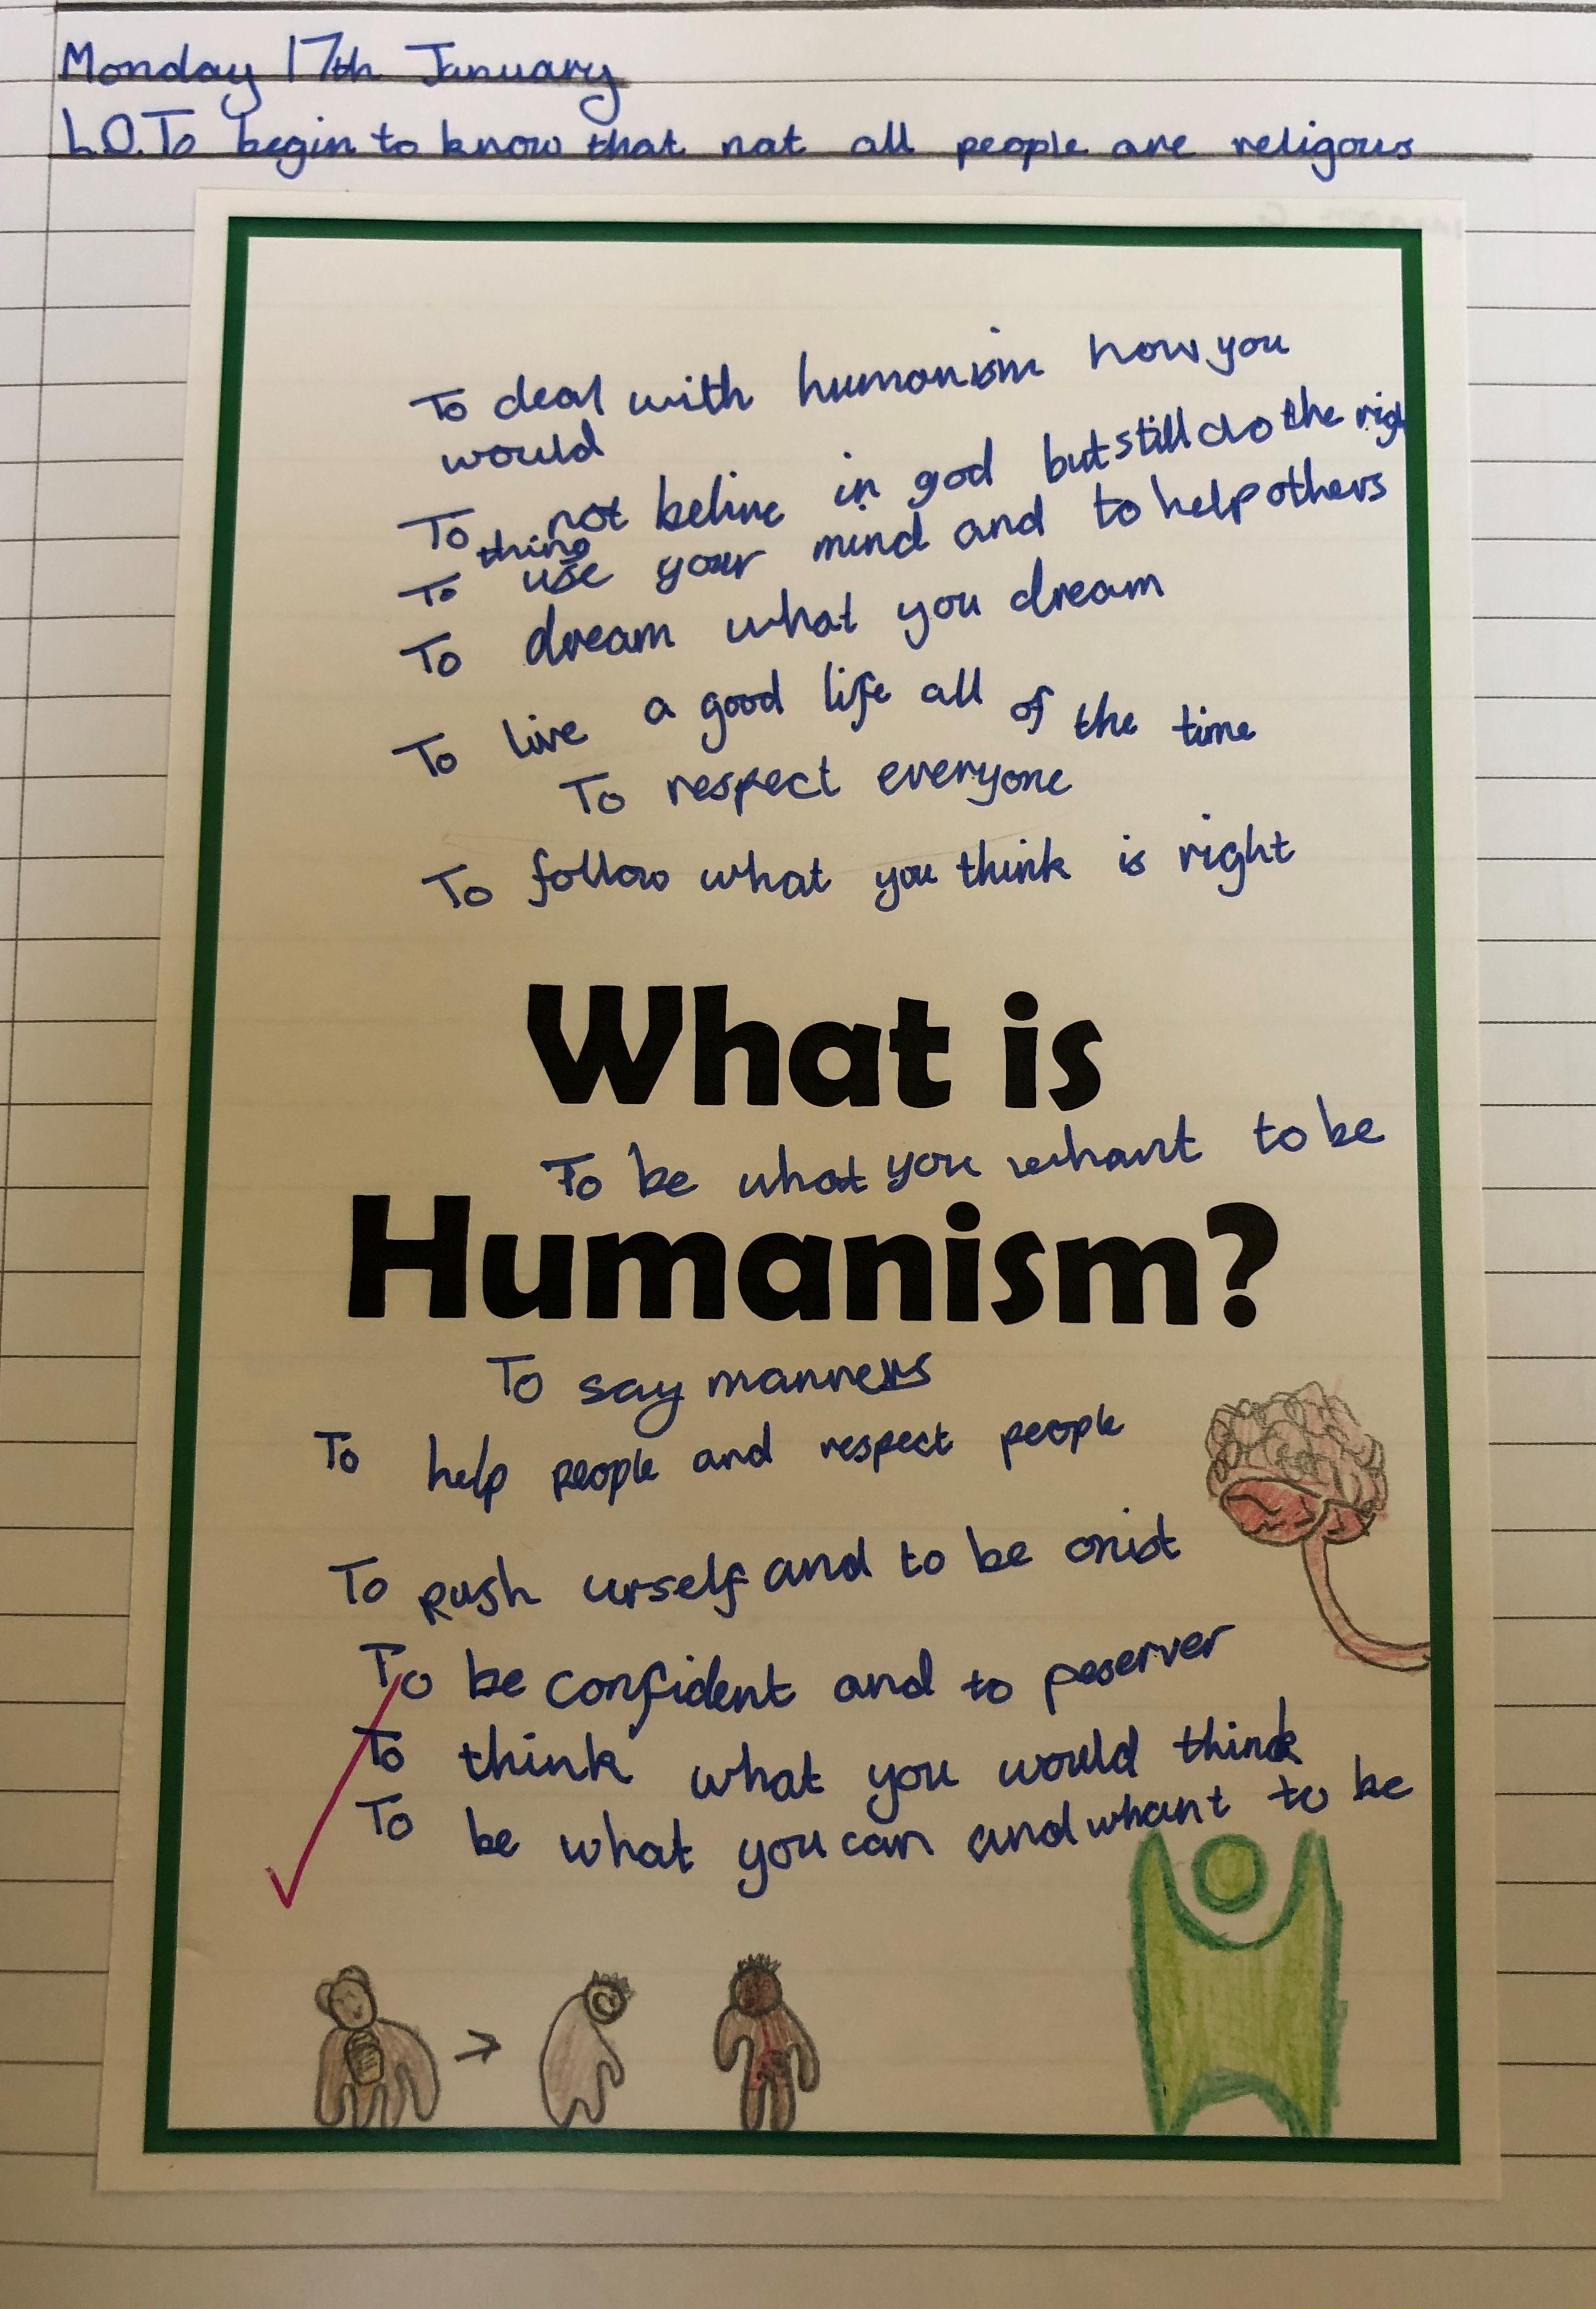 Monday 17th January
L.O. To begin to know that not all people are religous
To deal with humanism how you
would
To not belive in god but still do the righ
thing
To use your mind and to help others
To dream what you dream
To live a good life all of the time
To respect everyone
To follow what you think is right
What is
To be what you whant to be
Humanism?
To say manners
To help people and respect people
To push urself and to be
To be confident and to peserver
To think what you would think
To be what you can and whant to be